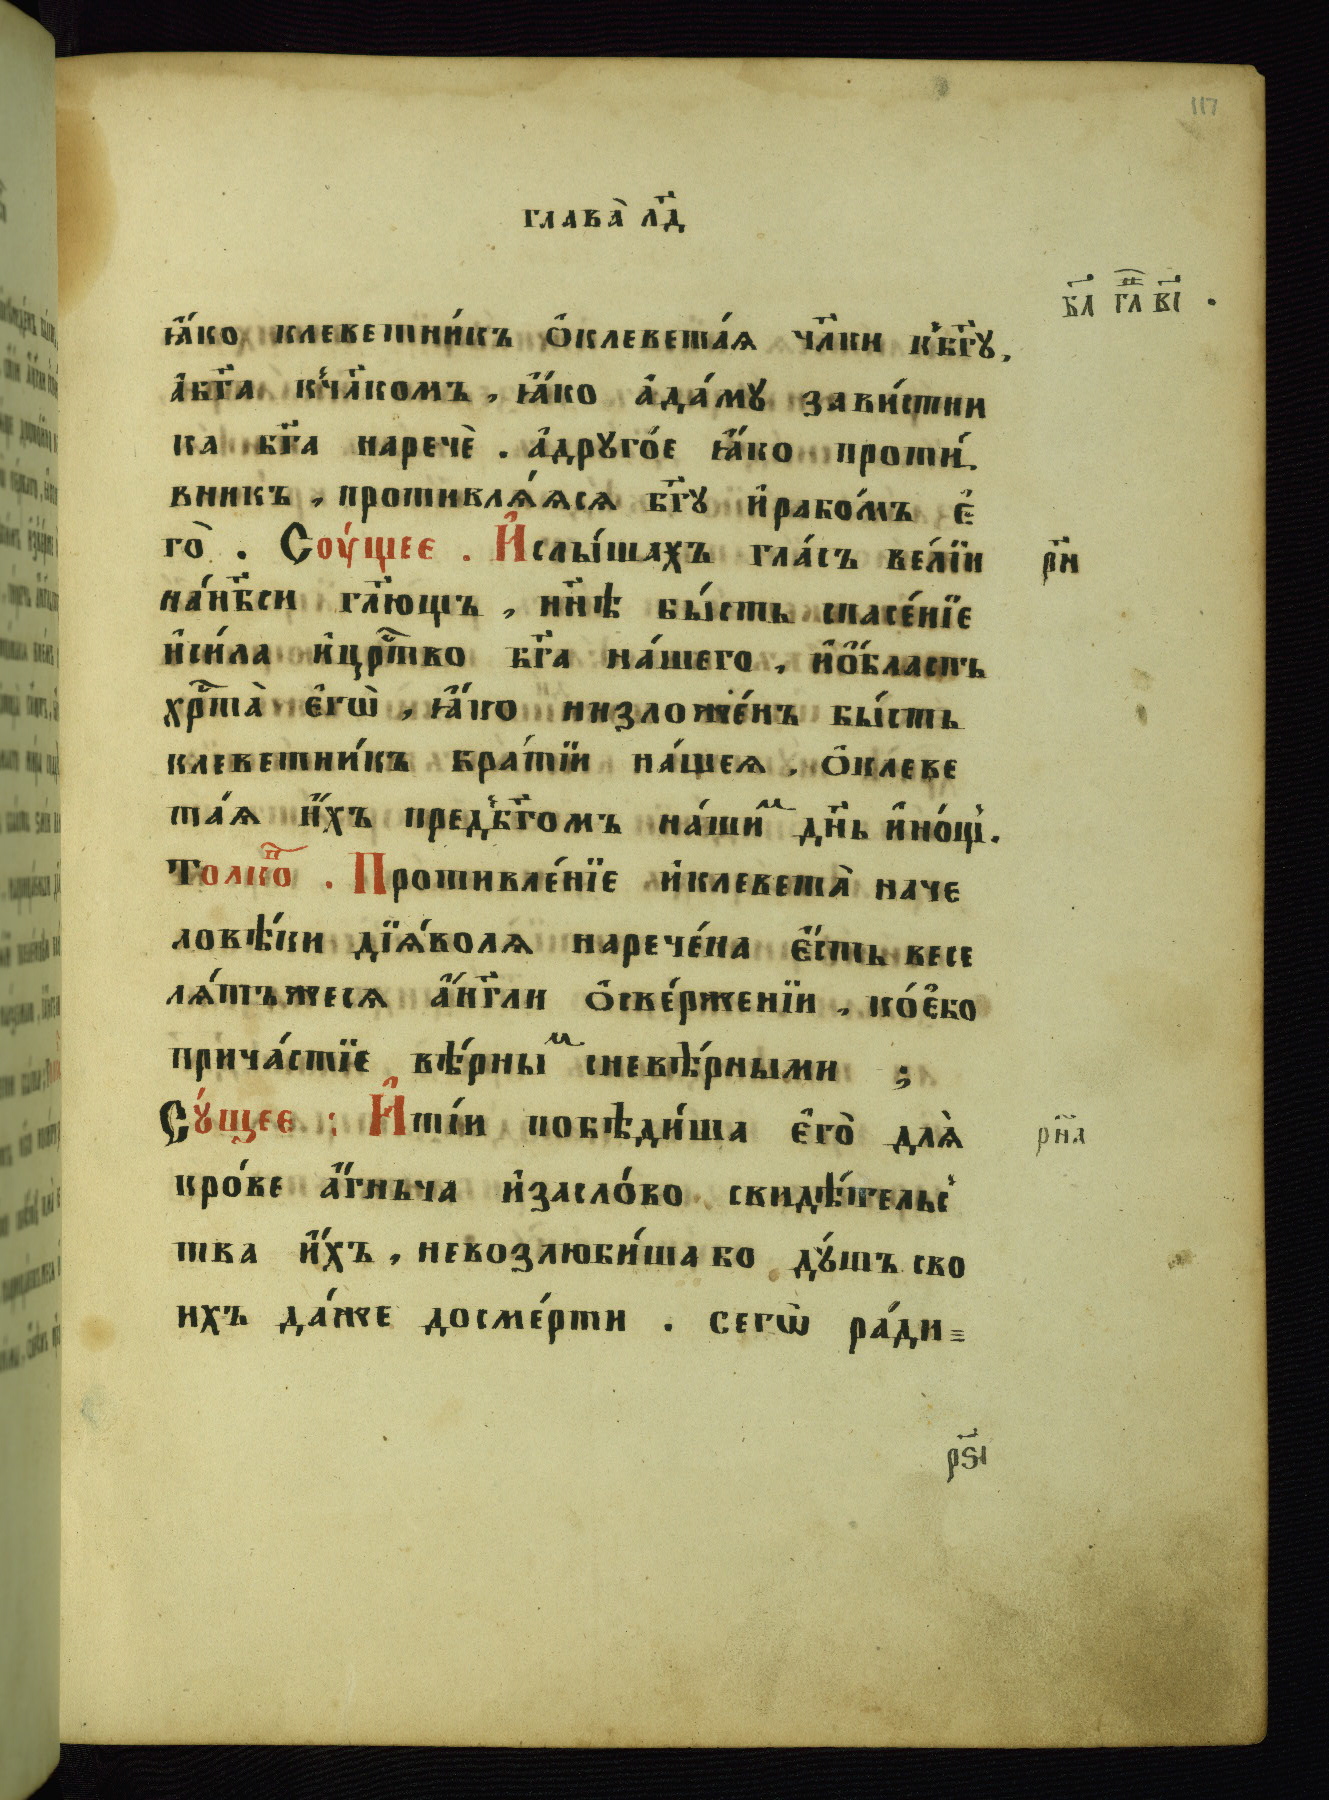 117
глава̀ л҃д
бл гл вı .
ꙗ҆́ко клеветни́къ ѻ҆клевета́ѧ чл҃ки к̾бг҃ꙋ,
а҆бг҃а к̾чл҃комъ, ꙗ҆́ко а҆да́мꙋ зави́стни
ка бг҃а наречѐ . а҆дрꙋго́е ꙗ҆́ко проти́
вникъ, противлѧ́ѧсѧ бг҃ꙋ и҆рабо́мъ є҆
го̀ . Соу́щее . И҆слы́шахъ гла́съ ве́лїи
рн҃
на́нб҃си гл҃ющъ, нн҃ѣ бы́сть спасе́нїе
и҆си́ла и҆црⷭ҇тво бг҃а на́шего, и҆ѻ҆́бласть
хрⷭ҇та̀ є҆гѡ̀, ꙗ҆́ко низложе́нъ бы́сть
клеветни́къ бра́тїи на́шеѧ, ѻ҆клеве
та́ѧ и҆́хъ предъбг҃омъ на́шиⷨ дн҃ь и҆но́щı.
Толкоⷡ҇ . Противле́нїе и҆клевета̀ наче
ловѣ́ки дїѧ́волѧ нарече́на є҆́сть весе
лѧ́тъжесѧ а҆́нг҃ли ѻ҆све́рженїи, ко́є҆бо
прича́стїе вѣ́рныⷨ сневѣ́рными ;
Сꙋ́щее : И҆ті́и побѣди́ша є҆го̀ длѧ̀
рн҃а
кро́ве а҆́гньча и҆засло́во свидѣ́тельс̾
тва и҆́хъ, невозлюби́ша бо дꙋ́шъ сво
ихъ да́же досме́рти . сегѡ̀ ра́ди
рѕ҃ı